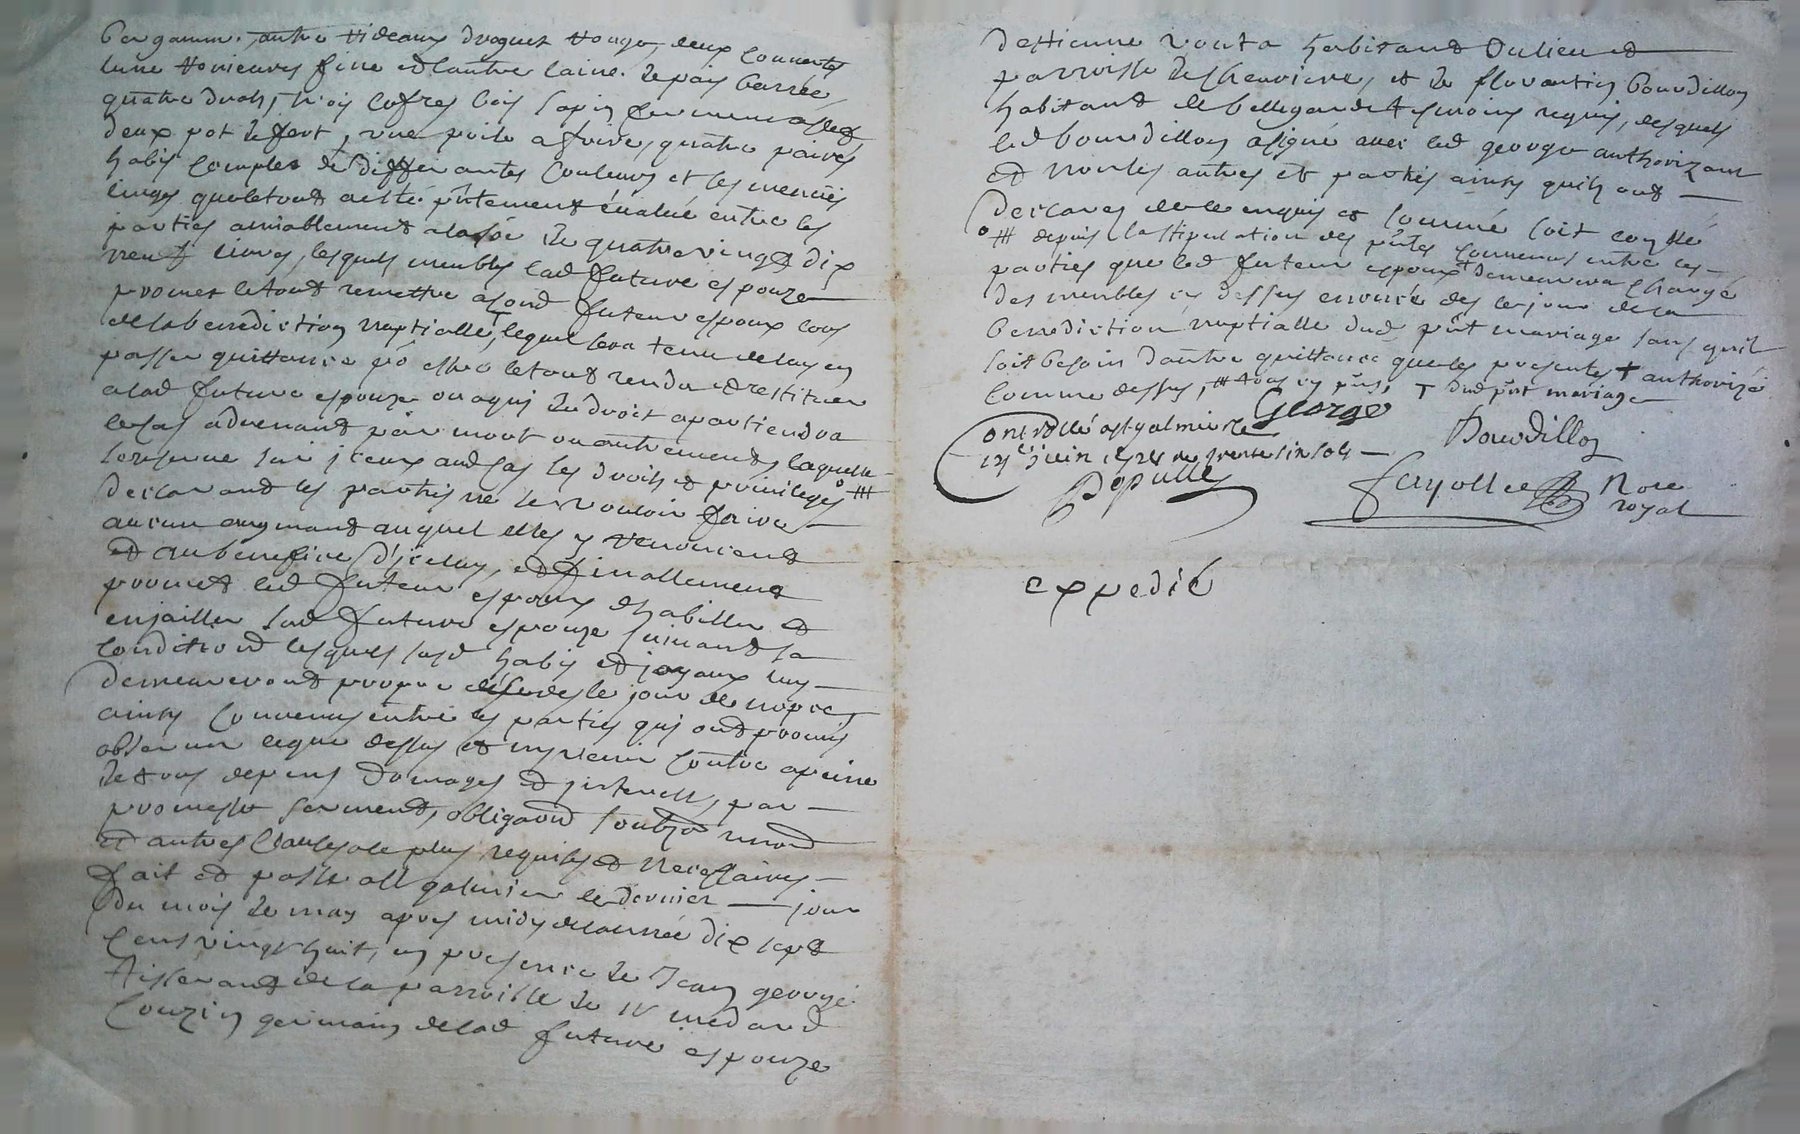 bergamme, autre rideaux droguet rouge, deux couvertes
lune fine et lautre laine de pais barrée
quatre draps, trois cofres bois sapin fermant a clef
deux pot de fert, une poile a frire, quatre paires
habis complet de differantes couleurs et les menües
linges que le tout a esté pñtement évalué entre les
parties amiablement a la so̅e de quatre vingt dix
neuf livres, lesquels meubles lad future espouze
promet le tout remettre aud futeur espoux lors
de la benediction nuptialle ┬, lequel sera tenu de luy en
passer quittance po̅ estre le tout rendu et restitüer
a lad future espouze ou a qui de droit apartiendra
le cas advenant par mort ou autrement, laquelle
conserve sur jceux aud cas les droits et privileges #
declarant les parties ne se vouloir faire
aucun augmant auquel elles y renoncent
et au benefice d'jceluy, et finallement
promet led futeur espoux dhabiller et
enjailler lad future espouze suivant sa
condition lesquels susd habis et joyaux luy
demeureront propre des le jour de nopces
ainsy convenu entre les parties qui ont promis
observer ce que dessus et ny venir contre a peine
de tous depens domages et jnterests, par
promesse serment, obligaōn soubz̄ renōn
et autres clauses de plus requises et necessaires
fait et passé a St galmier le dernier jour
du mois de may apres midy de lannée dix sept
cens vingt huit, en presence de Jean george
tisserant de la parroisse de St medard
couzin germain de lad future espouze
destienne habitant du lieu et
parroisse de chevrieres, et de florantin bourdillon
habitant de bellegarde tesmoins requis, desquels
led bourdillon a signé avec led george authorizant
et non les autres et parties ainsy quils ont
declaré de ce enquis et sommé soit conllé
# depuis la stipulation des pñtes convenus entre les
parties que led futeur espoux † demeurera chargé
des meubles cy dessus enoncé des le jour de la
benediction nuptialle dud pñt mariage sans quil
soit besoin dautre quittance que les presentes † authorizé
comme dessus, ┬ dud pñt mariage
George
Controllé a St galmier le
juin 1728 ru trente six sols
Bourdillon
Populle
fayolle Nore
royal
expedié